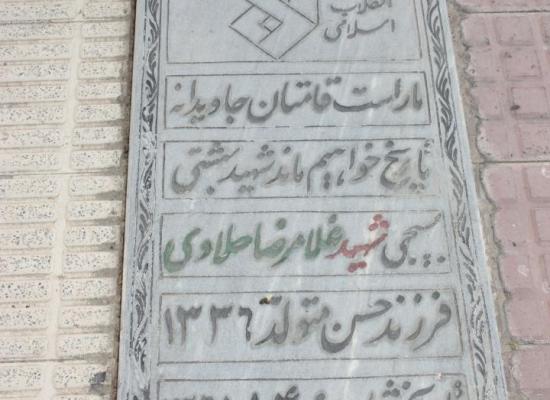 انقلاب
اسلامی
ما راست قامتان جاویدانه
تاریخ خواهیم ماند شهید بهشتی
بسیجی شهید غلامرضا حلاوی
فرزند حسن متولد ۱۳۳۶